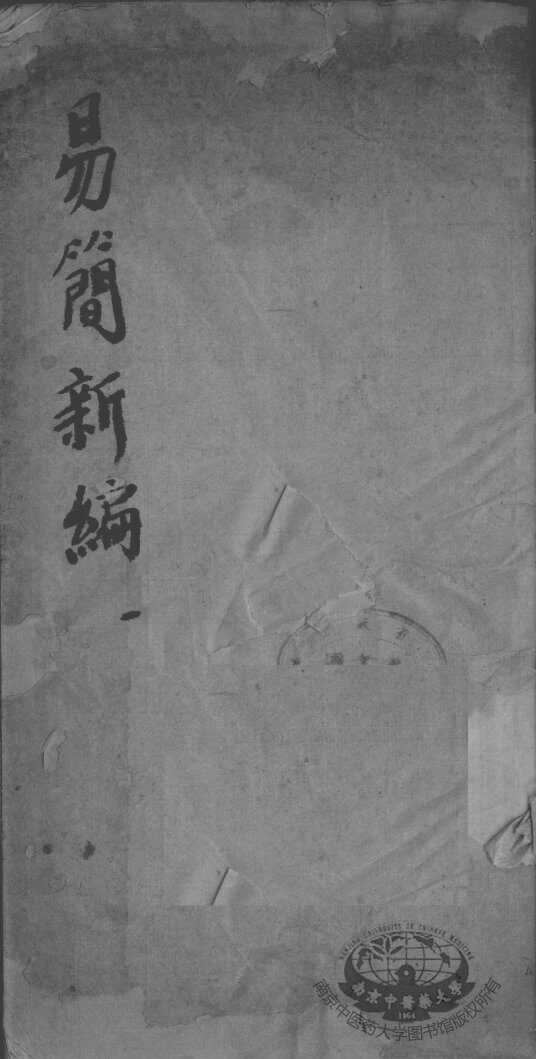 易簡新編
一
NANJING UNIVERSITY OF CHINESE MEDICINE
南京中醫藥大學
1954
南京中医药大学图书馆版权所有